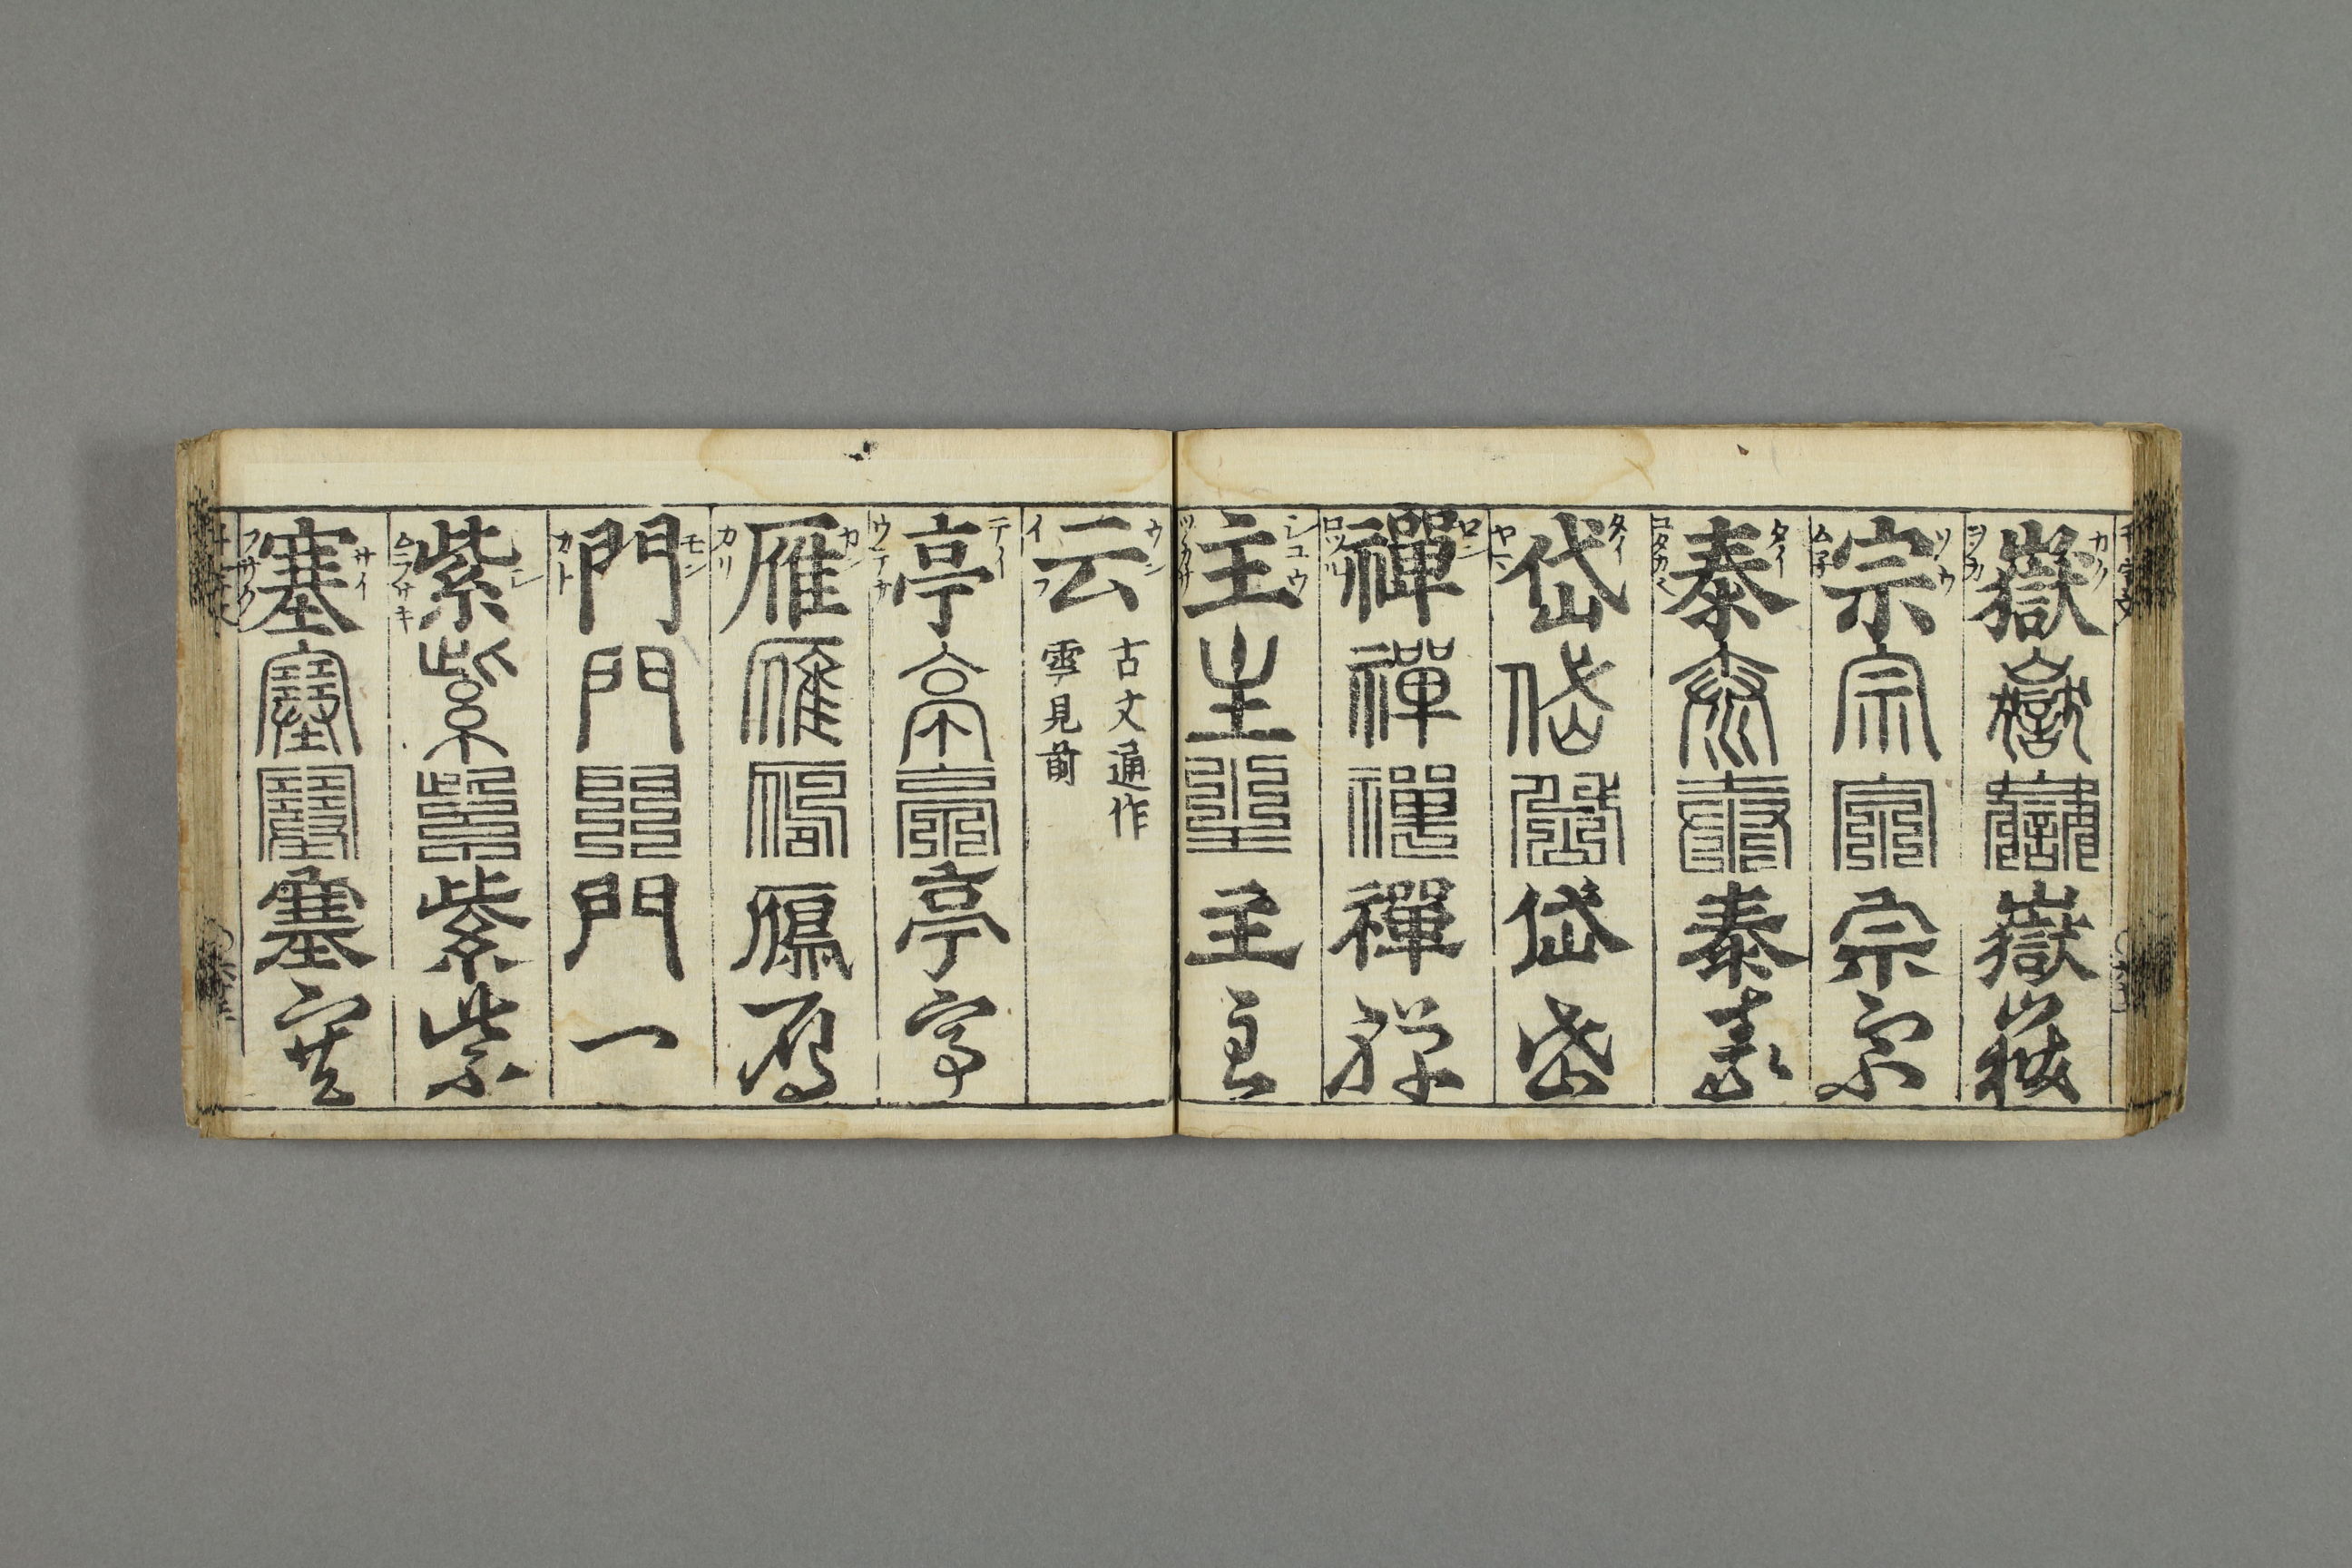 嶽嶽嶽嶽嶽
カク
ヲカ
宗宗宗宗宗
ソウ
ム子
泰泰泰泰泰
タイ
岱岱岱岱岱
タイ
禪禪禪禪禪
主主主主主
シユウ
ツカサ
云
ウン
イフ
古文通作
雲見前
亭亭亭亭亭
テイ
ウテナ
雁雁雁鴈鴈
カン
カリ
門門門門門
モン
カト
紫紫紫紫紫
シ
ムラサキ
塞塞塞塞塞
サイ
フサク